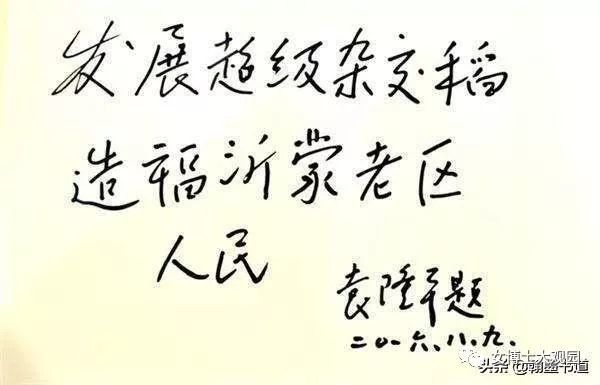 发展超级杂交稻
造福沂蒙老区
人民
袁隆平题
二〇一六.八.九.
女博士大观园
头条@翰墨书道